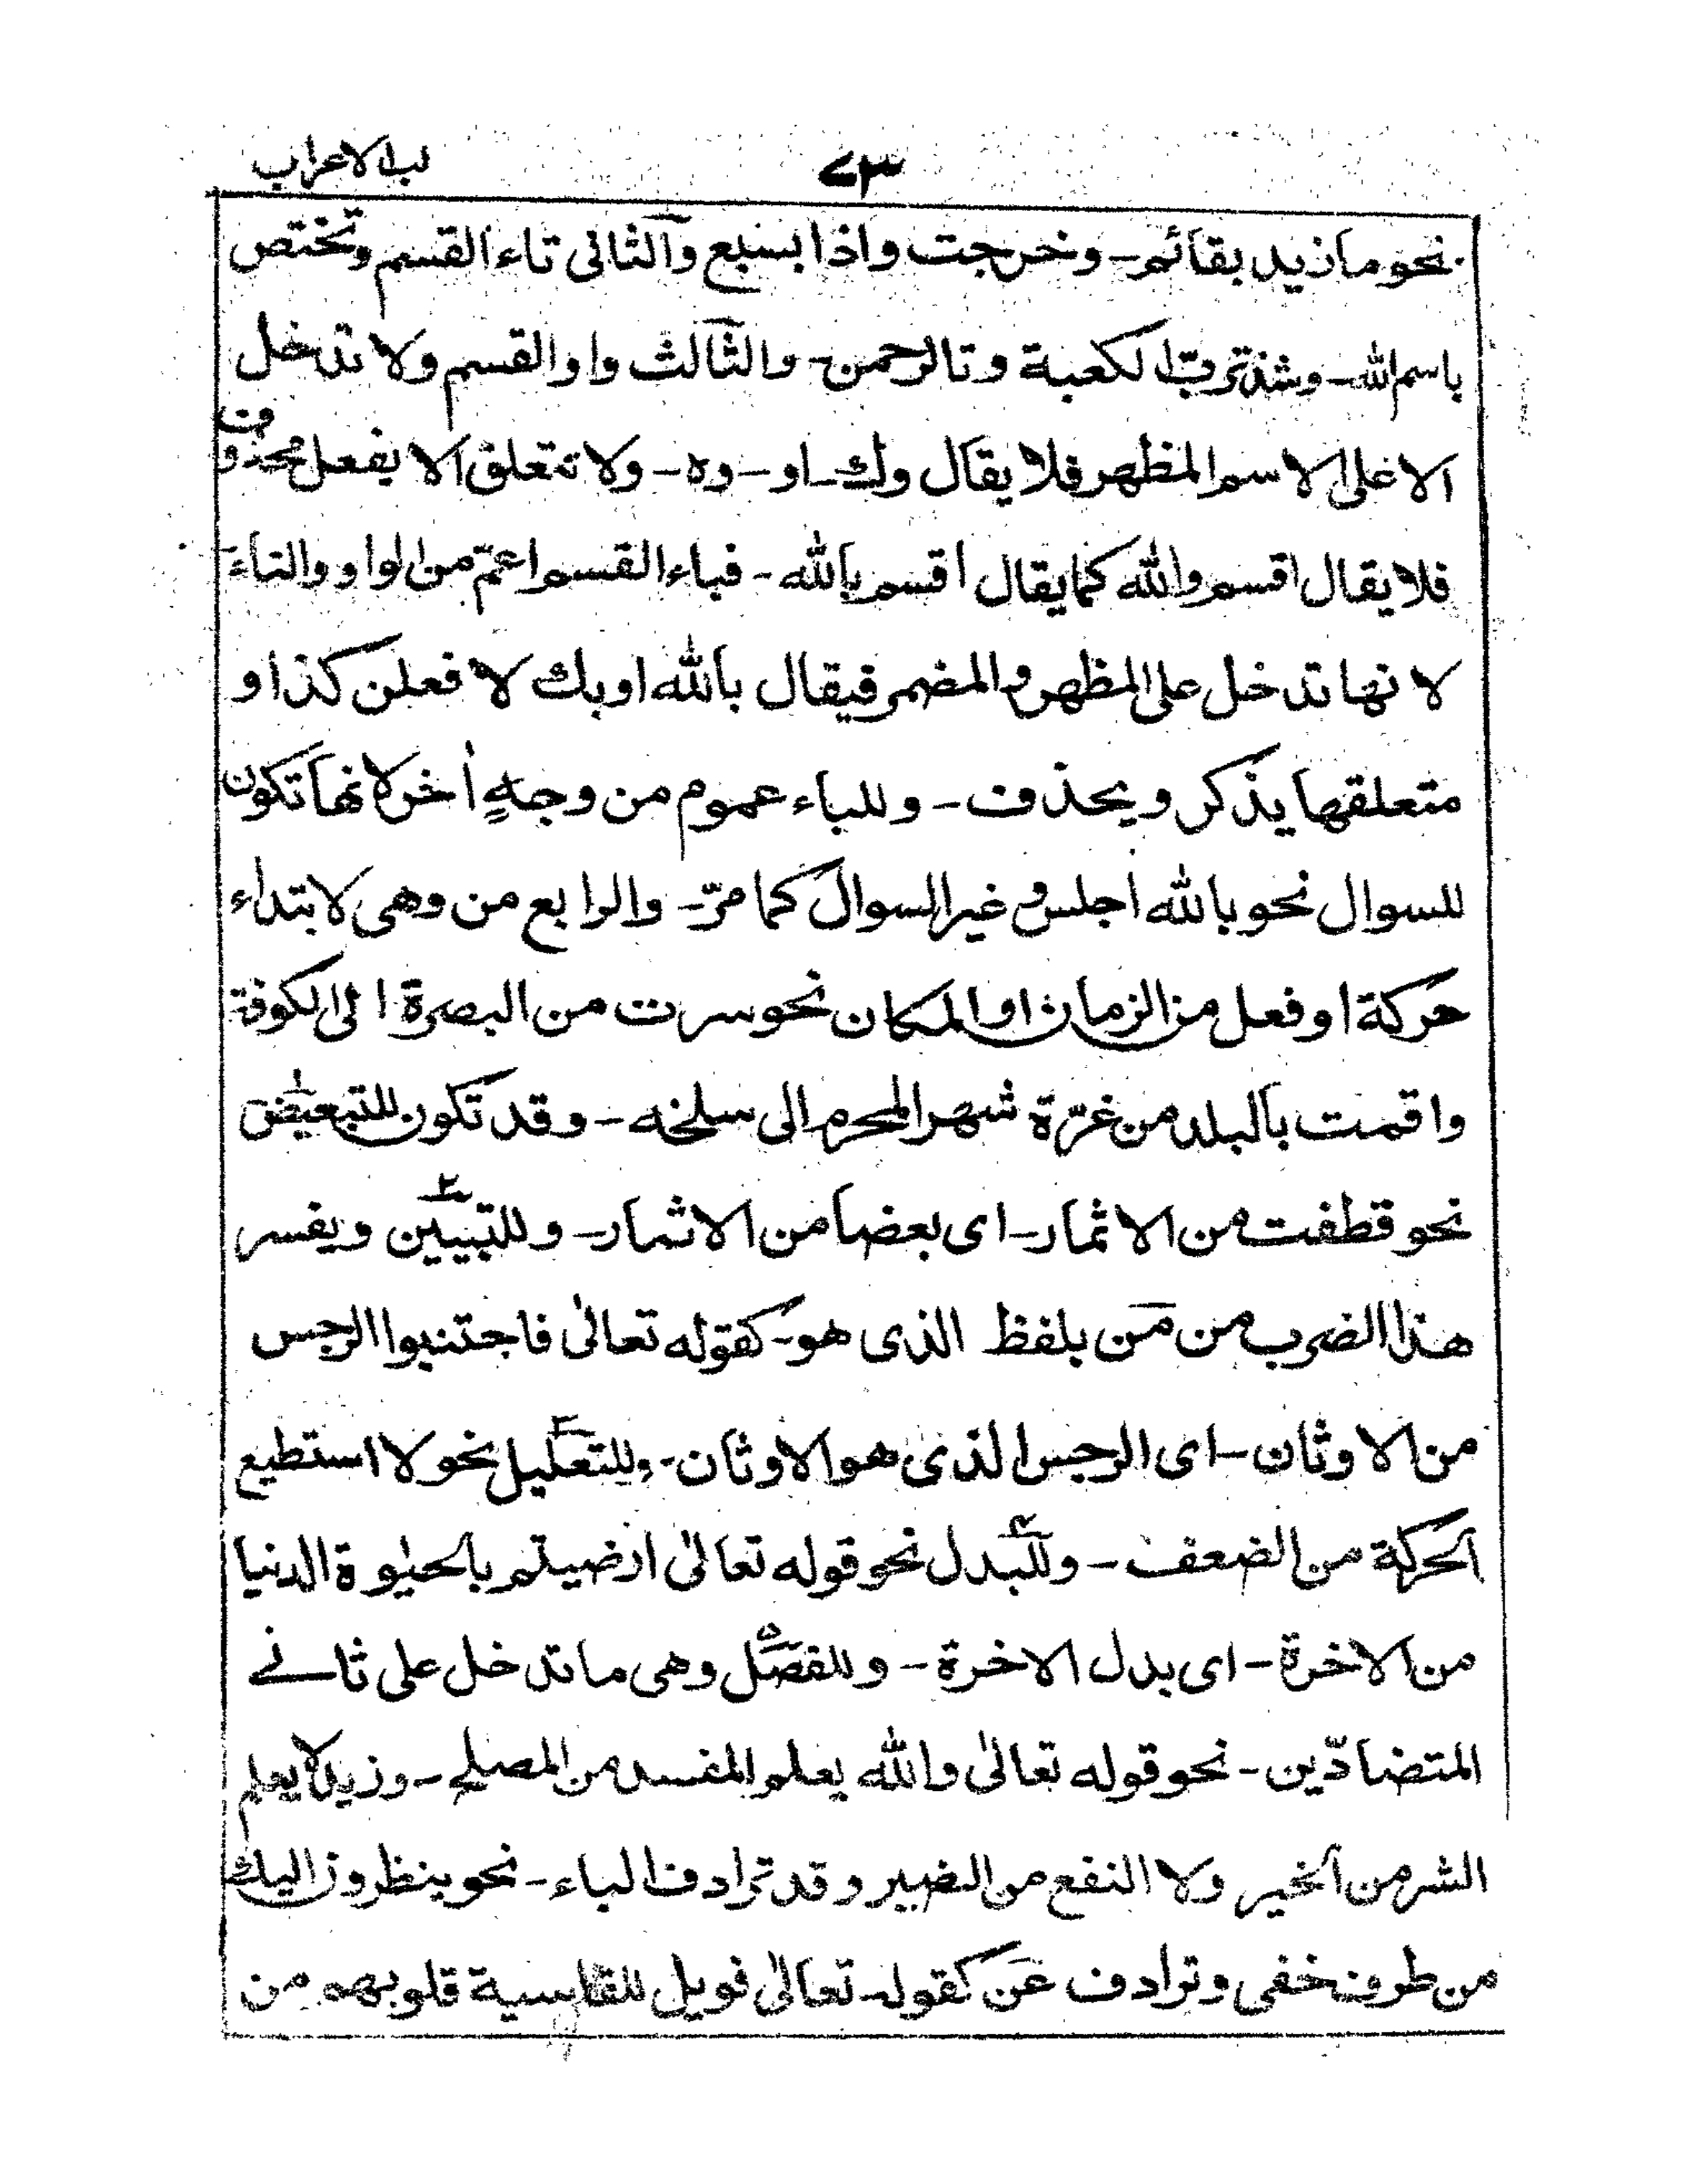 لب الاعراب
٧٣
نحو ما زيد بقائم - وخرجت واذا بسبع والثانى تاء القسم وتختص
باسم الله - وشذ تربّ الكعبة وتالرحمن - والثالث واو القسم ولا تدخل
الا على الاسم المظهر فلا يقال وك - او - وه - ولا تتعلق الا بفعل محذوف
فلا يقال اقسم والله كما يقال اقسم بالله - فباء القسم اعمّ من الواو والتاء
لانها تدخل على المظهر والمضمر فيقال بالله او بك لافعلن كذا و
متعلقها يذكر ويحذف - وللباء عموم من وجهٍ أخر لانها تكون
للسوال نحو بالله اجلس وغير السوال كما مرّ - والرابع من وهى لابتداء
حركة او فعل من الزمان او المكان نحو سرت من البصرة الى الكوفة
واقمت بالبلد من غرّة شهر المحرم الى سلخه - وقد تكون للتبعيض
نحو قطفت من الاثمار - اى بعضا من الاثمار - وللتبيين ويفسر
هذا الضرب من مَن بلفظ الذى هو - كقوله تعالىٰ فاجتنبوا الرجس
من الاوثان - اى الرجس الذى هو الاوثان - وللتعليل نحو لا استطيع
الحركة من الضعف - وللبدل نحو قوله تعالىٰ ارضيتم بالحيٰوة الدنيا
من الاخرة - اى بدل الاخرة - وللفصل وهى ما تدخل على ثانے
المتضادّين - نحو قوله تعالىٰ والله يعلم المفسد من المصلح - وزيد لا يعلم
الشر من الخير ولا النفع من الضير وقد ترادف الباء - نحو ينظرون اليك
من طرف خفى وترادف عَن كقوله تعالىٰ فويل للقاسية قلوبهم من